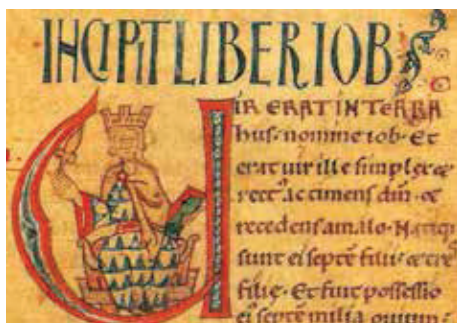 INCIPIT LIBER IOB
VIR ERAT IN TERRA
hus· nomine iob· Et
erat uir ille simplex &
rect' ac timens dm̄· &
recedens a malo· Natiq;
sunt ei septē filii· & tres
filię· Et fuit possessio
ei septē milia ouium·